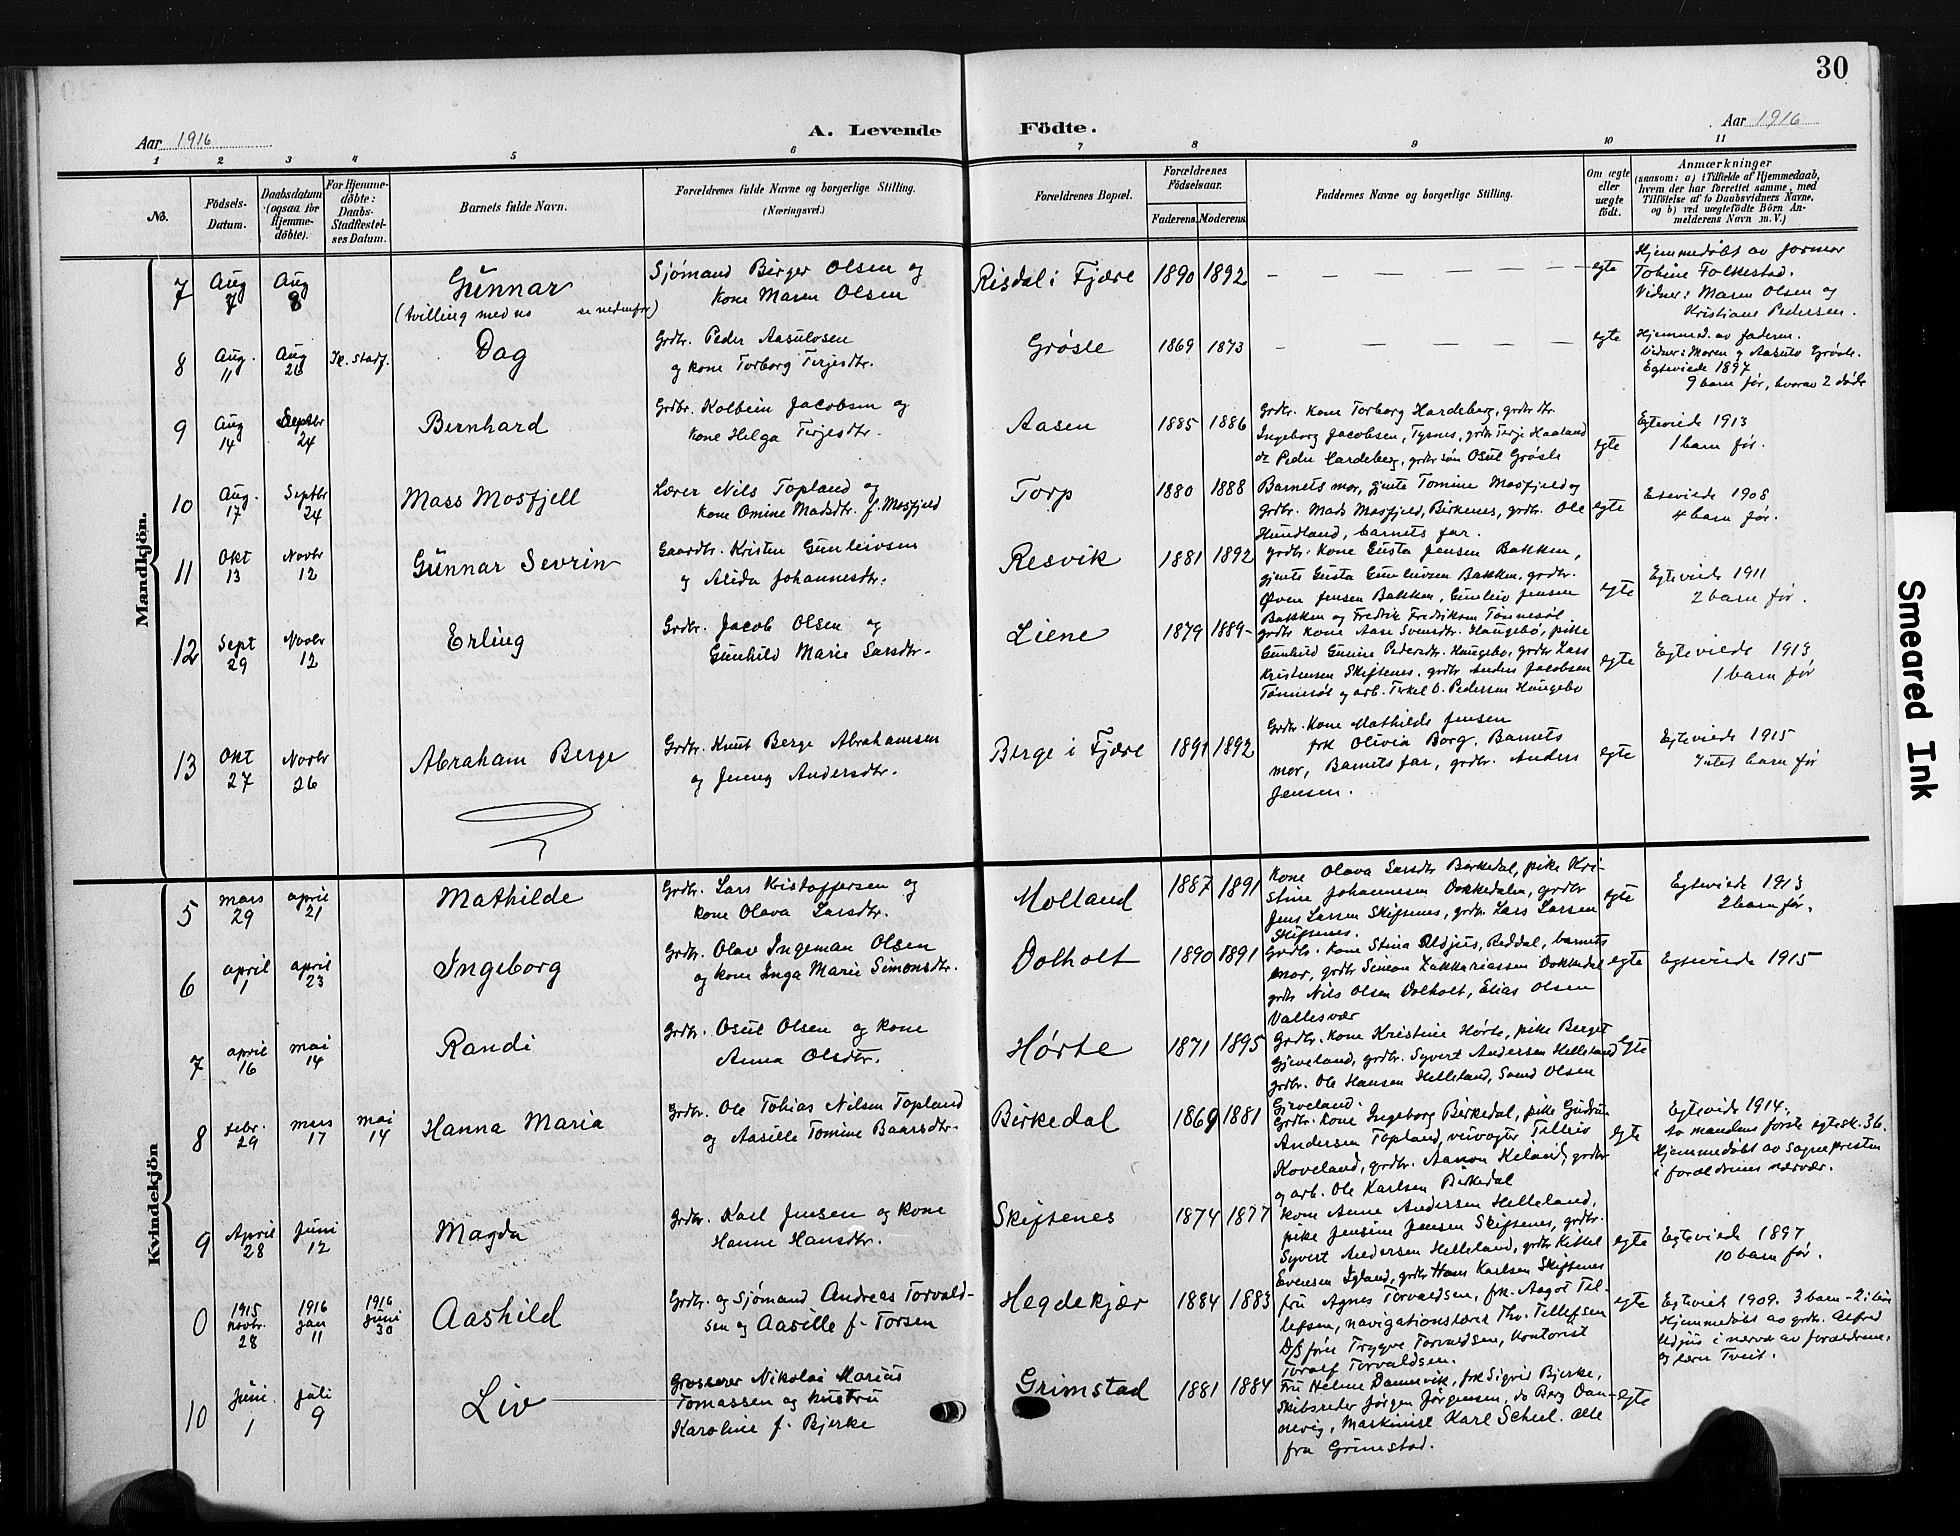 30
Aar 1916
A. Levende Födte.
Aar 1916
1 2 3 4 5 6 7 8 9 10 11
No.
Födsels-
Datum.
Daabsdatum
(ogsaa for
Hjemme-
döbte).
For Hjemme-
döbte:
Daabs-
Stadfestel-
ses Datum.
Barnets fulde Navn.
Forældrenes fulde Navne og borgerlige Stilling.
(Næringsvei.)
Forældrenes Bopæl.
Forældrenes
Födselsaar.
Faderens. Moderens.
Faddernes Navne og borgerlige Stilling.
Om ægte
eller
uægte
födt.
Anmærkninger
(saasom: a) i Tilfælde af Hjemmedaab,
hvem der har forrettet samme, med
Tilföielse af to Daabsvidners Navne,
og b) ved uægtefödte Börn An-
melderens Navn m. V.)
Mandkjön.
7
Aug
7
Aug
8
Gunnar
(tvilling med no se nedenfor)
Sjømand Birger Olsen og
kone Maren Olsen
Risdal i Fjære
1890 1892
— — — — — — —
egte
Hjemmedøbt av formor
Tobine Folkestad.
Vidner: Maren Olsen og
Kristiane Pedersen.
8
Aug.
11
Aug
26
Ik. stadf.
Dag
Grdbr. Peder Aasulvsen
og kone Torborg Terjesdtr.
Grøsle
1869 1873
— — — — — —
egte
Hjemmed. av faderen.
Vidner: Moren og Aasulv Grøsle.
Egteviede 1897
9 barn før, hvorav 2 døde
9
Aug
14
Septbr
24
Bernhard
Grdbr. Kolbein Jacobsen og
kone Helga Terjesdtr.
Aasen
1885 1886
Grdbr. kone Torborg Hardeberg, grdbr dtr.
Ingeborg Jacobsen, Tysnes, grdbr Terje Haaland
og Peder Hardeberg, grdbr søn Osul Grøsle
egte
Egteviede 1913
1 barn før.
10
Aug.
17
Septbr
24
Mass Mosfjell
Lærer Nils Topland og
kone Omine Madsdtr. f. Mosfjeld
Torp
1880 1888
Barnets mor, gjente Tomine Mosfjeld og
grdbr. Mads Mosfjeld, Birkenes, grdbr. Ole
Hundland, barnets far.
egte
Egteviede 1908
4 barn før.
11
Okt
13
Novbr
12
Gunnar Sevrin
Gaardbr. Kristen Gunleivsen
og Alida Johannesdtr.
Resvik
1881 1892
grdbr. kone Gusta Jensen Bakken,
gjente Gusta Gunleivsen Bakken, grdbr.
Øven Jensen Bakken, Gunleiv Jensen
Bakken og Fredrik Fredriksen Tønnesøl
egte
Egteviede 1911
2 barn før.
12
Sept
29
Novbr
12
Erling
Grdbr. Jacob Olsen og
Gunhild Marie Larsdtr.
Liene
1879 1889
grdbr kone Aase Svensdtr. Haugebø, pike
Gunhild Gurine Pedersdtr. Haugebø, grdbr Lars
Kristensen Skifsenes, grdbr Anders Jacobsen
Tønnesøl og arb. Terkel O. Pedersen Haugebø
egte
Egteviede 1913
1 barn før
13
Okt
27
Novbr
26
Abraham Berge
Grdbr. Knut Berge Abrahamsen
og Jenny Andersdtr.
Berge i Fjære
1891 1892
Grdbr. kone Mathilde Jensen
frk Olivia Borg. Barnets
mor, Barnets far, grdbr. Anders
Jensen.
egte
Egteviede 1915
Intet barn før
Kvindekjön
5
mars
29
april
21
Mathilde
Grdbr. Lars Kristoffersen og
kone Olava Larsdtr.
Molland
1887 1891
Kone Olava Larsdtr Birkedal, pike Kri-
stine Johannesen Dokkedalen, grdbr
Jens Larsen Skifsenes, grdbr Lars Larsen
Skifsenes.
egte
Egteviede 1913
2 barn før.
6
april
1
april
23
Ingeborg
Grdbr. Olav Ingeman Olsen
og kone Inga Marie Simonsdtr.
Dolholt
1890 1891
Grdbr. kone Stina Udjus, Reddal, barnets
mor, grdbr Simon Zakkariassen Dokkedal
grdbr Nils Olsen Dolholt, Elias Olsen
Vallesvær
egte
Egteviede 1915
7
april
16
mai
14
Randi
Grdbr. Osul Olsen og kone
Anna Olsdtr.
Hørte
1871 1895
Grdbr. kone Kristine Hørte, pike Berget
Gjeveland, grdbr. Syvert Andersen Helleland
grdbr. Ole Hansen Helleland, Svend Olsen
Gjeveland.
egte
8
febr.
29
mars
17
mai
14
Hanna Maria
Grdbr. Ole Tobias Nilsen Topland
og Aasille Tomine Baarsdtr.
Birkedal
1869 1881
Grdbr. kone Ingeborg Birkedal, pike Gudrun
Andersen Topland, veivogter Telleiv
Koveland, grdbr. Aanon Heland, grdbr
og arb. Ole Karlsen Birkedal
egte
Egteviede 1914.
to mandens første egtesk. 36.
Hjemmedøbt av sognepresten
i forældrenes nærvær.
9
April
28
Juni
12
Magda
Grdbr. Karl Jensen og kone
Hanne Hansdtr.
Skifsenes
1874 1877
Kone Anne Andersen Helleland,
pike Jensine Jensen Skifsenes, grdbr.
Syvert Andersen Helleland, grdbr Kittel
Evensen Igland, grdbr Hans Karlsen Skifsenes
egte
Egteviede 1897
10 barn før.
0
1915
Novbr.
28
1916
Jan
11
1916
Juni
30
Aashild
Grdbr. og Sjømand Andreas Torvald-
sen og Aasille f. Torsen
Hegdekjær
1884 1883
fru Agnes Torvaldsen, frk. Aagot Til-
lefsen, navigationslærer Th. Tillefsen
D/S fører Trygve Torvaldsen, Kontorist
Toralf Torvaldsen.
egte
Egteviet 1909. 3 barn
Hjemmedøbt av grdbr. Alfred
Udjus i nærvær av forældrene,
og lærer Tveit.
10
Juni
1
Juli
9
Liv
Grosserer Nikolai Marius
Tomassen og hustru
Karoline f. Bjerke
Grimstad
1881 1884
Fru Helene Dannevik, frk Sigrid Bjerke,
Skibsreder Jørgen Jørgensen, do Berg Dan-
nevig, Maskinist Karl Scheel. Alle
fra Grimstad.
egte
Smeared Ink